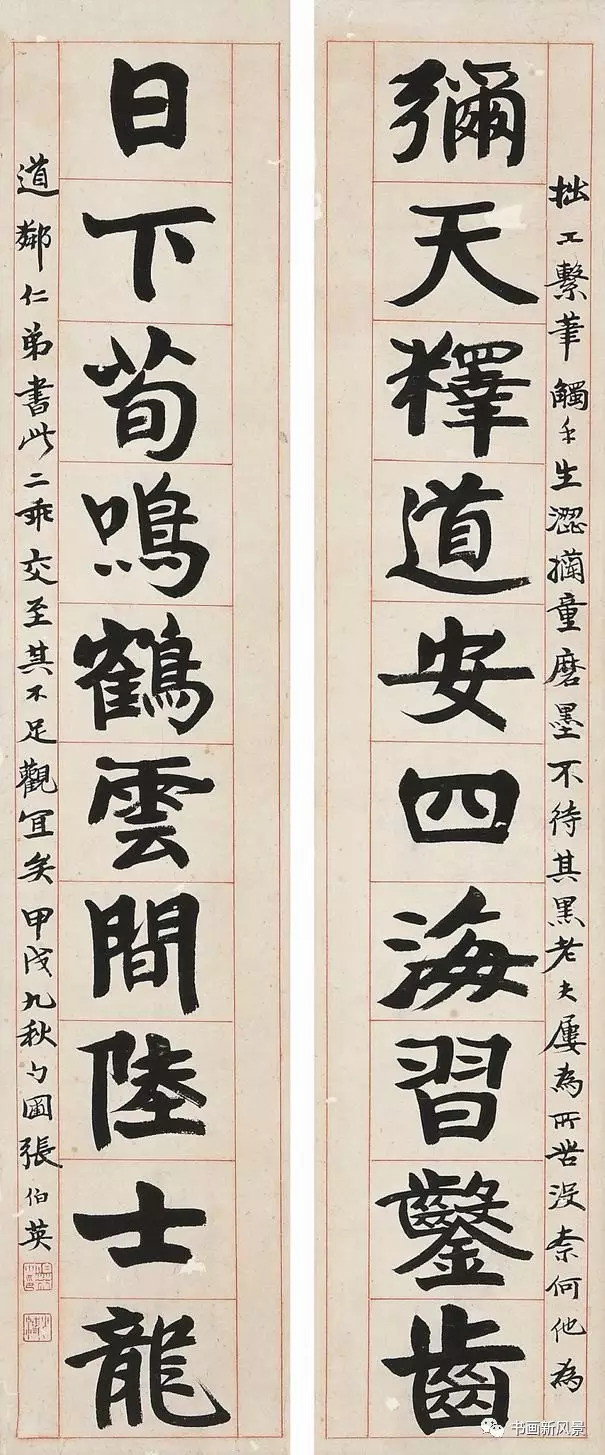 彌天釋道安四海習鑿齒
拙工繫筆觸手生澀獷童磨墨不待其黑老夫屢為所苦沒柰何他為
日下荀鳴鶴雲間陸士龍
道鄰仁弟書此二乖交至其不足觀宜矣甲戌九秋勺圃張伯英
书画新风景